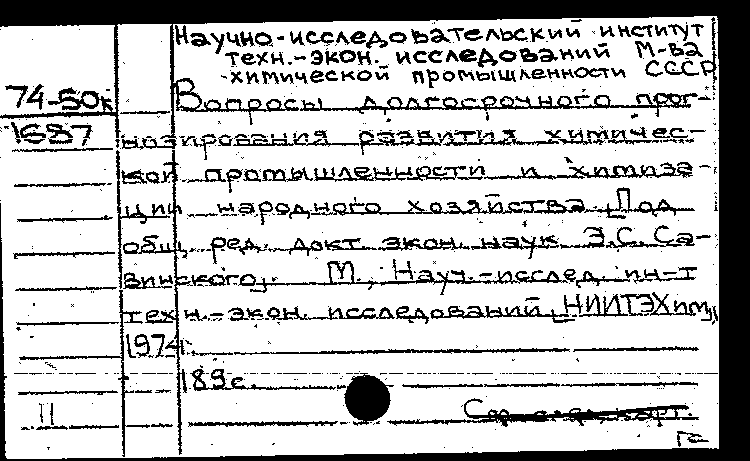 Научно-исследовательский институт
техн.-экон. исследований М-ва
химической промышленности СССР
74-50к Вопросы долгосрочного прог-
1687 нозирования развития химичес-
кой промышленности и химиза-
ции народного хозяйства. [Под
общ. ред. докт. экон. наук Э.С. Са-
винского]. М., Науч.-исслед. ин-т
техн.-экон. исследований "НИИТЭХим",
1974.
189 с.
11